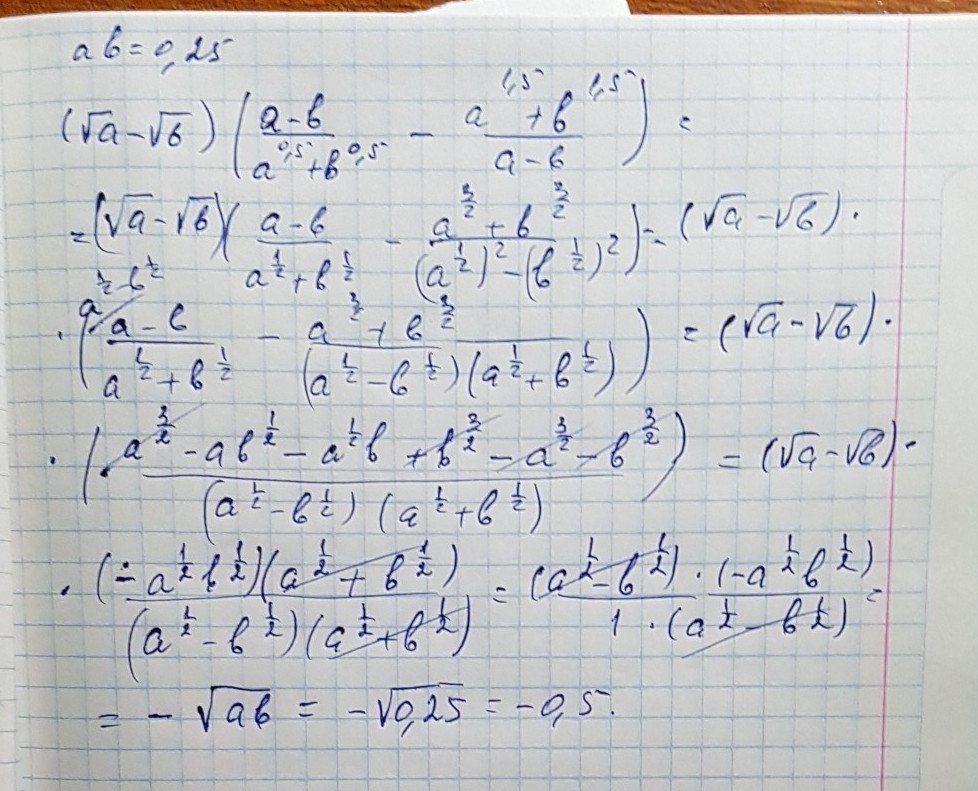 ab = 0,25
(√a - √b) ( (a - b)/(a^0,5 + b^0,5) - (a^1,5 + b^1,5)/(a - b) ) =
= (√a - √b) ( (a - b)/(a^(1/2) + b^(1/2)) - (a^(3/2) + b^(3/2))/((a^(1/2))^2 - (b^(1/2))^2) ) = (√a - √b) ·
a^(1/2) - b^(1/2)
· ( (a - b)/(a^(1/2) + b^(1/2)) - (a^(3/2) + b^(3/2))/((a^(1/2) - b^(1/2))(a^(1/2) + b^(1/2))) ) = (√a - √b) ·
· ( (a^(3/2) - ab^(1/2) - a^(1/2)b + b^(3/2) - a^(3/2) - b^(3/2))/((a^(1/2) - b^(1/2)) (a^(1/2) + b^(1/2))) ) = (√a - √b) ·
· ((-a^(1/2)b^(1/2))(a^(1/2) + b^(1/2)))/((a^(1/2) - b^(1/2))(a^(1/2) + b^(1/2))) = ((a^(1/2) - b^(1/2)) · (-a^(1/2)b^(1/2)))/(1 · (a^(1/2) - b^(1/2))) =
= - √ab = - √0,25 = - 0,5.